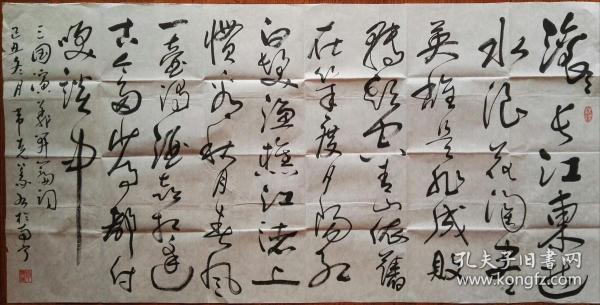 滚滚长江东逝
水浪花淘尽
英雄是非成败
转头空青山依旧
在几度夕阳红
白发渔樵江渚上
惯看秋月春风
一壶浊酒喜相逢
古今多少事都付
笑谈中
三国演义开篇词
己丑冬月 书于南宁
孔夫子旧书网
www.kongfz.com